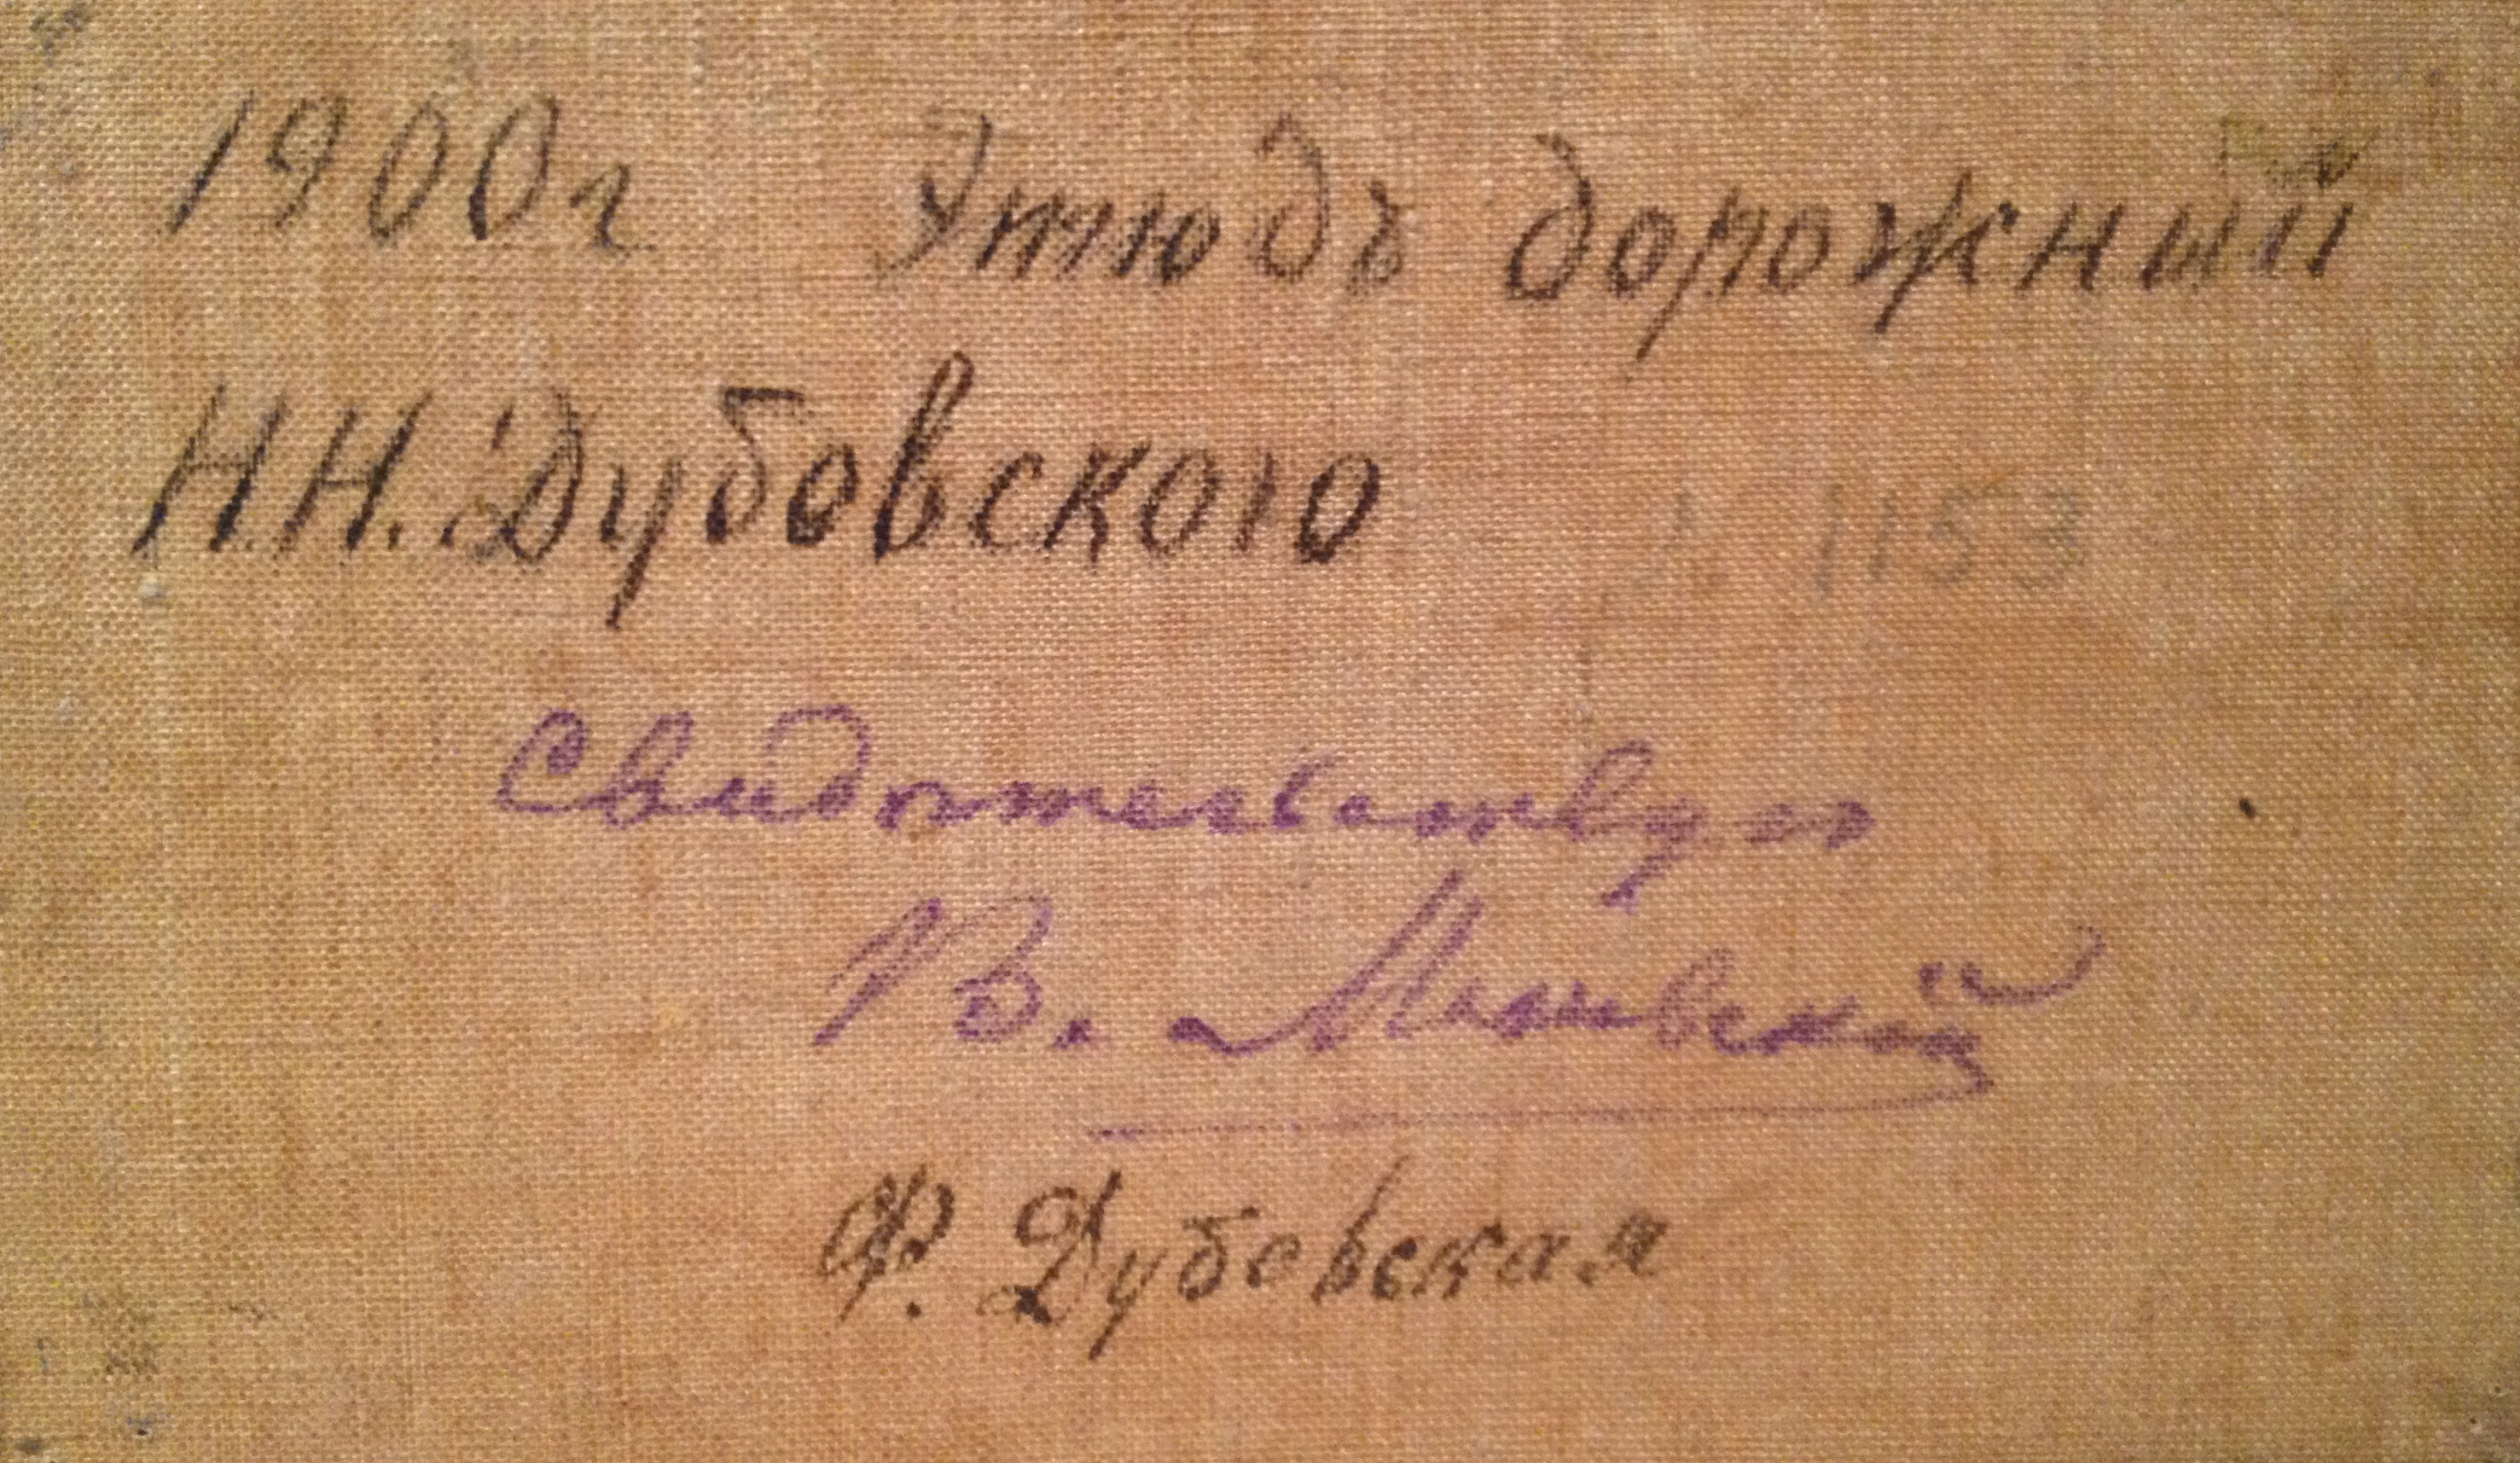 1900г Этюдъ дорожный
Н.Н. Дубовского
1153
Свидѣтельствую
В. Маковский
Ф. Дубовская